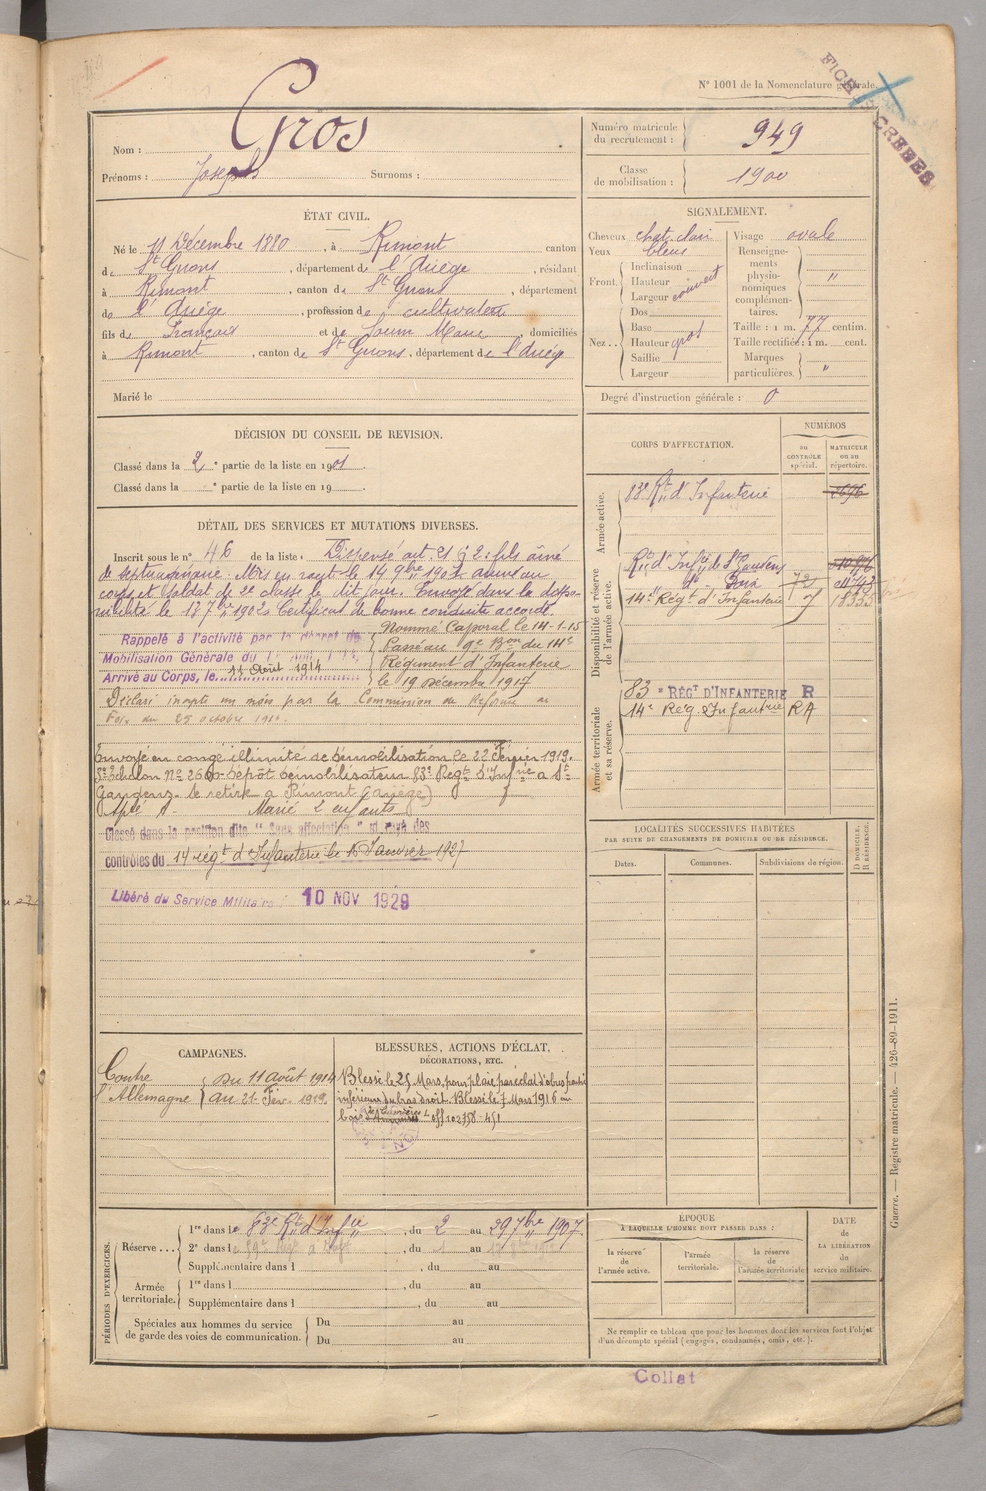 N° 1001 de la Nomenclature générale.
FICHES CRÉÉES
Nom : Gros
Prénoms : Joseph Surnoms :
Numéro matricule du recrutement : 949
Classe de mobilisation : 1900
ÉTAT CIVIL.
Né le 11 Décembre 1880, à Rimont canton
de St Girons, département de l'Ariège, résidant
à Rimont, canton de St Girons, département
de l'Ariège, profession de cultivateur
fils de François et de Marie, domiciliés
à Rimont, canton de St Girons, département de l'Ariège
Marié le
SIGNALEMENT.
Cheveux chat. clair
Yeux bleus
Front. Inclinaison
Hauteur
Largeur couvert
Nez.. Dos
Base
Hauteur gros
Saillie
Largeur
Visage ovale
Renseignements physionomiques complémentaires. "
Taille : 1 m. 77 centim.
Taille rectifiée : 1 m. cent.
Marques particulières. "
Degré d'instruction générale : 0
DÉCISION DU CONSEIL DE REVISION.
Classé dans la 2e partie de la liste en 1901.
Classé dans la e partie de la liste en 19 .
DÉTAIL DES SERVICES ET MUTATIONS DIVERSES.
Inscrit sous le n° 46 de la liste. Dispensé art. 21 § 2: fils aîné
de septuagénaire. Mis en route le 14 9bre 1901 arrivé au
corps et Soldat de 2e classe le dit jour. Envoyé dans la dispo-
nibilité le 18 7bre 1902. Certificat de bonne conduite accordé.
Rappelé à l'activité par le décret de
Mobilisation Générale du
Arrivé au Corps, le 11 Août 1914
Nommé Caporal le 14-1-15
Passé au 9e Bon du 14e
Régiment d'Infanterie
le 19 Décembre 1917
Déclaré inapte un mois par la Commission de Réforme de
Foix du 25 octobre
Envoyé en congé illimité de démobilisation le 22 Février 1919.
Échelon N° Dépôt démobilisateur 83e Regt d'Infrie à St
Gaudens se retire à Rimont (Ariège)
Marié 2 enfants
Classé dans la position dite "Sans affectation" et rayé des
contrôles du 14 régt d'Infanterie le 15 Janvier 1927
Libéré du Service Militaire 10 NOV 1929
CORPS D'AFFECTATION.
NUMÉROS
au CONTRÔLE spécial.
MATRICULE ou au répertoire.
Armée active.
83e Rt d'Infanterie 2696
Disponibilité et réserve de l'armée active.
Rt d'Infie de St Gaudens
do - Foix 72
14e Régt d'Infanterie
Armée territoriale et sa réserve.
83e RÉGT D'INFANTERIE R
14e Rég. Infanterie RA
LOCALITÉS SUCCESSIVES HABITÉES
PAR SUITE DE CHANGEMENTS DE DOMICILE OU DE RÉSIDENCE.
Dates. Communes. Subdivisions du région. D DOMICILE. R RÉSIDENCE.
CAMPAGNES.
Contre l'Allemagne
du 11 Août 1914
au 21 Fév. 1919.
BLESSURES, ACTIONS D'ÉCLAT,
DÉCORATIONS, ETC.
Blessé le 25 Mars, pour plaie par éclat d'obus partie
inférieure du bras droit. Blessé le 7 Mars 1916 au
bois
PÉRIODES D'EXERCICES.
Réserve... 1re dans le 83e Rt d'Infie, du 2 au 29 7bre 1907.
2e dans le , du 1 au
Supplémentaire dans l , du au
Armée territoriale. 1re dans l , du au
Supplémentaire dans l , du au
Spéciales aux hommes du service de garde des voies de communication. Du au
Du au
ÉPOQUE
À LAQUELLE L'HOMME DOIT PASSER DANS :
la réserve de l'armée active.
l'armée territoriale.
la réserve de l'armée territoriale
DATE de LA LIBÉRATION du service militaire.
Ne remplir ce tableau que pour les hommes dont les services font l'objet
d'un décompte spécial (engagés, condamnés, omis, etc.).
Guerre. — Registre matricule. — 426-89-1911.
Collat